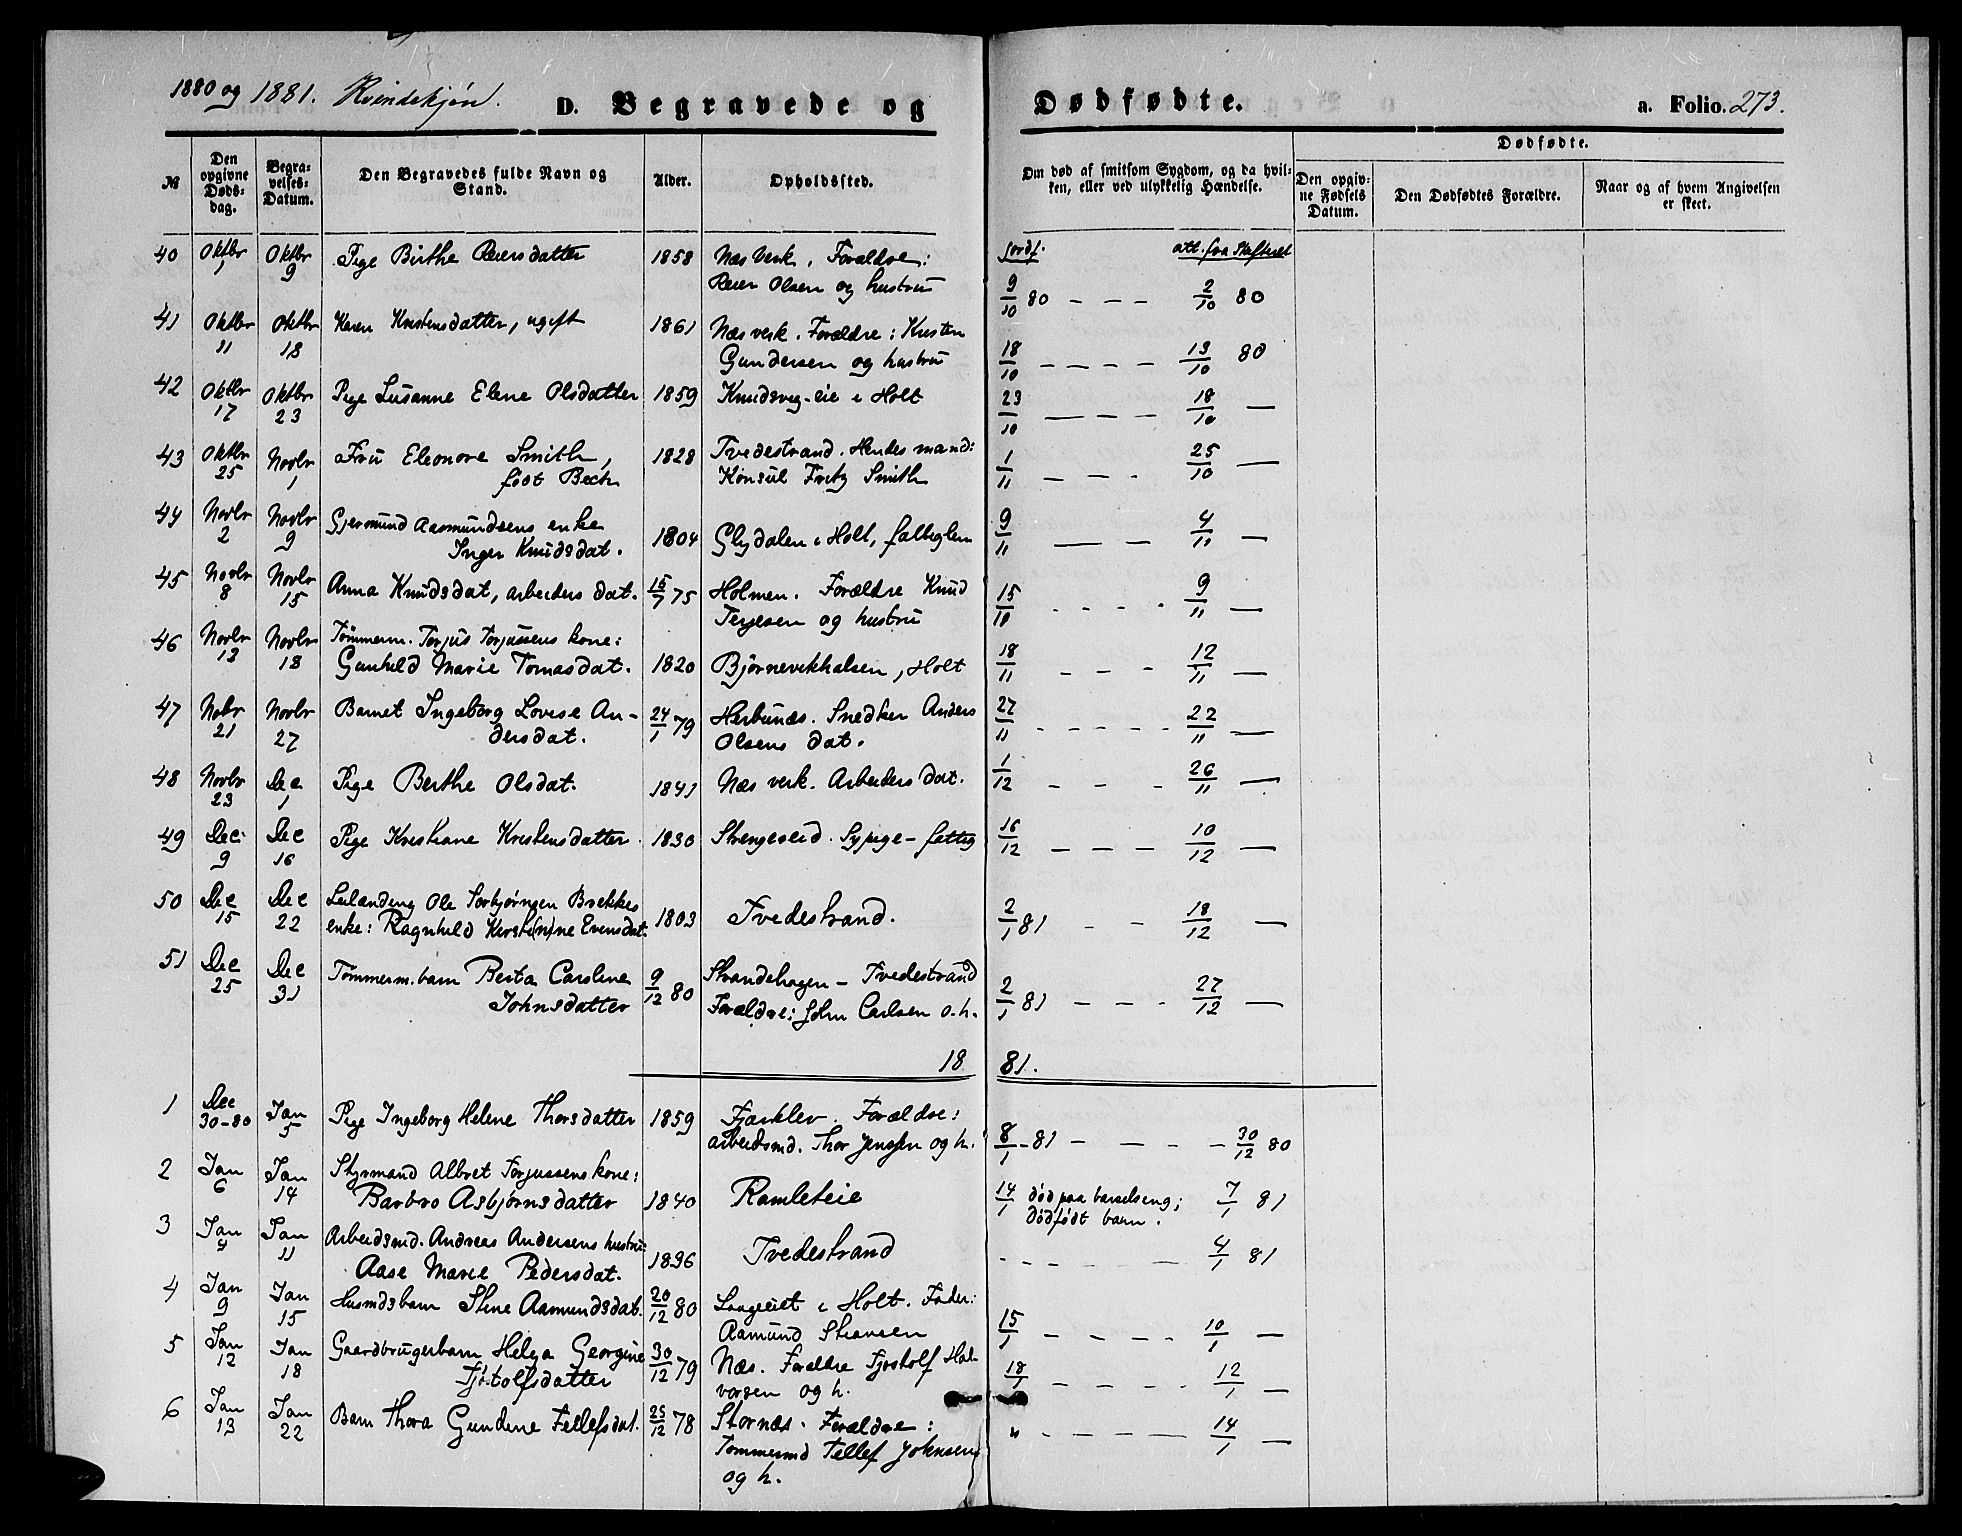 1880 og 1881. Kvindekjøn. D. Begravede og Dødfødte. a. Folio. 273.
№ Den opgivne Døds-dag. Begra-velses-Datum. Den Begravedes fulde Navn og Stand. Alder. Opholdssted. Om død af smitsom Sygdom, og da hvil-ken, eller ved ulykkelig Hændelse. Dødfødte.
Den opgiv-ne Fødsels Datum. Den Dødfødtes Forældre. Naar og af hvem Angivelsen er skeet.
jordf. att. fra Skifteret
40 Oktbr 1 Oktbr 9 Pige Birthe Reiersdatter 1858 Næs Verk. Forældre:
Reier Olsen og hustru 9/10 80 - - - 2/10 80
41 Oktbr 11 Oktbr 18 Karen Kristensdatter, ugift 1861 Næs verk. Forældre: Kristen
Gundersen og hustru 18/10 - - - - 13/10 80
42 Oktbr 17 Oktbr 23 Pige Susanne Elene Olsdatter 1859 Knudsveg-eie i Holt 23/10 - - - 18/10 —
43 Oktbr 25 Novbr 1 Fru Eleonore Smith, 1828 Tvedestrand. Hendes mand:
født Bech Konsul Fritz Smith 1/11 - - - 25/10 —
44 Novbr 2 Novbr 9 Gjermund Aasmundsens enke
Inger Knudsdat. 1804 Glydalen i Holt, fattiglem 9/11 - - 4/11 —
45 Novbr 8 Novbr 15 Anna Knudsdat, arbeiders dat. 15/7 75 Holmen. Forældre Knud
Terjesen og hustru 15/10 - - - - 9/11 —
46 Novbr 13 Novbr 18 Tömmerm. Torjus Torjussens kone:
Gunhild Marie Tomasdat. 1820 Bjørnevikhalsen, Holt 18/11 - - - 12/11 —
47 Nobr 21 Novbr 27 Barnet Ingeborg Lovise An- 24/1 79 Hesbunæs. Snedker Anders
dersdat. Olsens dat. 27/11 - - - - - 22/11 —
48 Novbr 23 Dec 1 Pige Berthe Olsdat. 1841 Næs verk. Arbeiders dat. 1/12 - - - 26/11 —
49 Dec 9 Dec 16 Pige Kristiane Kristensdatter 1830 Strengereid. Sypige - fattig 16/12 - - - 10/12 —
50 Dec 15 Dec 22 Leilænding Ole Torbjørnsen Brekkes
enke: Ragnhild Kersti(n)ne Evensdat. 1803 Tvedestrand. 2/1 81 - - 18/12 —
51 Dec 25 Dec 31 Tømmerm. barn Berta Caroline 9/12 80 Strandehagen - Tvedestrand
Johnsdatter Forældre: John Carlsen o. h. 2/1 81 - - - 27/12 —
1881.
1 Dec 30-80 Jan 5 Pige Ingeborg Helene Thorsdatter 1859 Fjærklev. Forældre:
arbeidsmd. Thor Jensen og h. 8/1 - 81 - - - - 30/12 80
2 Jan 6 Jan 14 Styrmand Albret Torjussens kone:
Barbro Asbjørnsdatter 1840 Ramleteie 14/1 død paa barselseng; 7/1 81
dødfødt barn.
3 Jan 4 Jan 11 Arbeidsmd. Andreas Andersens hustru:
Aase Marie Pedersdat. 1836 Tvedestrand - - - - - 4/1 81
4 Jan 9 Jan 15 Husmdsbarn Stine Aamundsdat. 20/12 80 Langeiet i Holt. Fader:
Aamund 15/1 - - - - 10/1 —
5 Jan 12 Jan 18 Gaardbrugerbarn Helga Georgine 30/12 79 Næs. Forældre Tjostolf Hal-
Tjøstolfsdatter vorsen og h. 18/1 - - - - 12/1 —
6 Jan 13 Jan 22 Barn Thora Gundine Tellefsdat. 25/12 78 Stornæs. Forældre:
Tommermd Tellef Johnsen " - - - - - 14/1 —
og h.